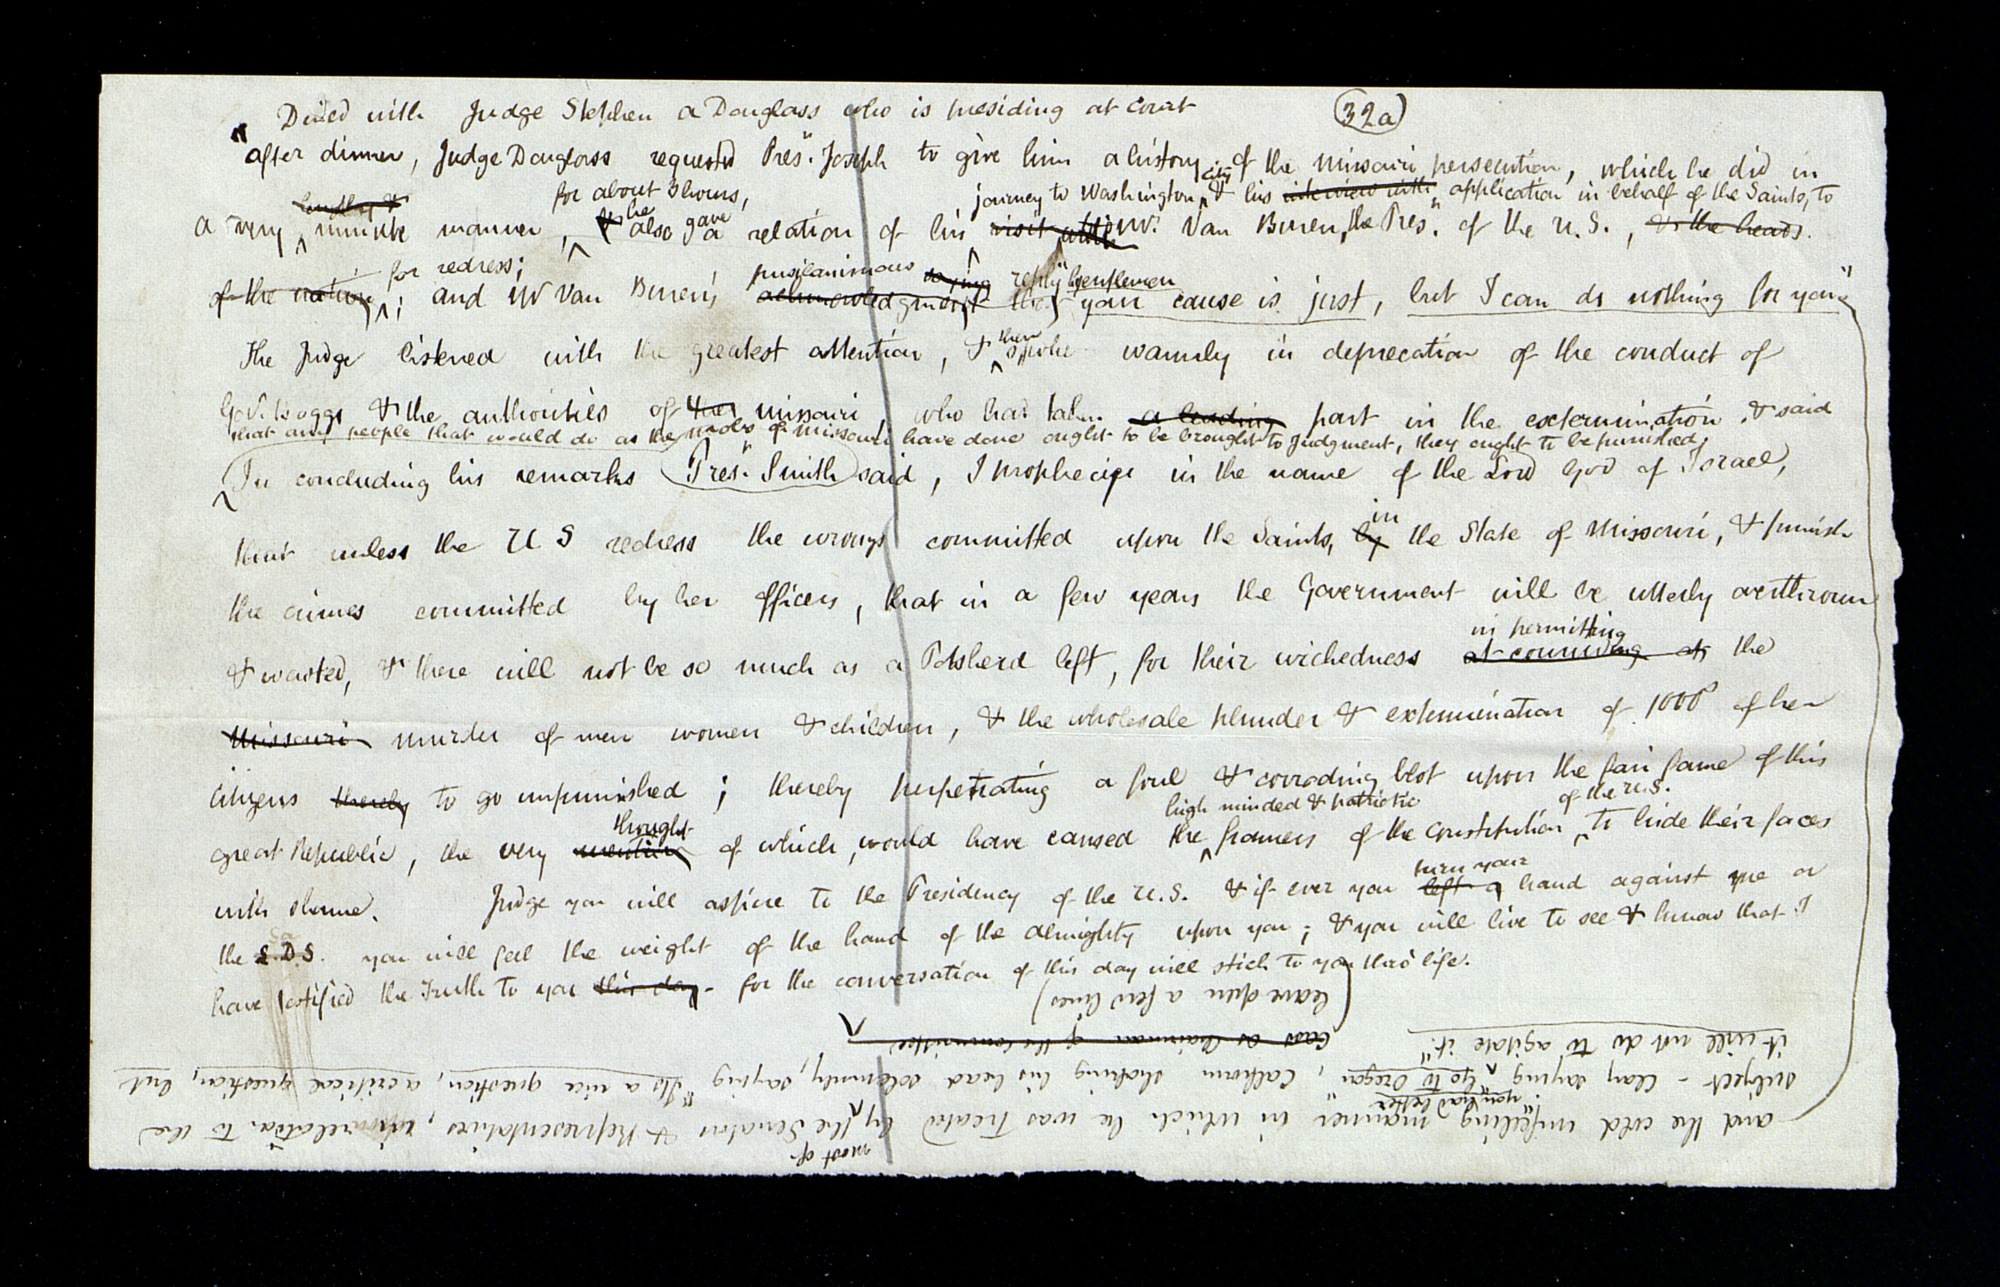 Dined with Judge Stephen a Douglass who is presiding at Court
(32a)
"after dinner, Judge Douglass requested Pres.t Joseph to give him a history of the missouri persecution, which he did in
lengthy & for about 3 hours, journey to Washington city & his interview with application in behalf of the Saints, to
a very minute manner, & he also gave a relation of his visit with Mr. Van Buren, the Pres.t of the U.S., & the heads
of the nation for redress; ; and Mr Van Buren's pusilanimous acknowledgment saying reply "Gentlemen your cause is just, but I can do nothing for you"
The Judge listened with the greatest attention, & then spoke warmly in deprecation of the conduct of
Gov. Boggs & the authorities of the missouri, who had taken a leading part in the extermination & said
that any people that would do as the mobs of missouri have done ought to be brought to judgment, they ought to be punished.
In concluding his remarks Pres.t Smith said, I prophecy in the name of the Lord God of Israel,
that unless the U S redress the wrongs committed upon the Saints, by in the State of Missouri, & punish
the crimes committed by her officers, that in a few years the Government will be utterly overthrown
in permitting
& wasted, & there will not be so much as a Potsherd left, for their wickedness at conniving at the
Missouri murder of men women & children, & the wholesale plunder & extermination of 1000s of her
citizens thereby to go unpunished; thereby perpetrating a foul & corroding blot upon the fair fame of this
thought high minded & patriotic of the U.S.
great Republic, the very mention of which, would have caused the framers of the Constitution to hide their faces
turn your
with shame. Judge you will aspire to the Presidency of the U.S. & if ever you left a hand against me or
the L.D.S. you will feel the weight of the hand of the almighty upon you; & you will live to see & know that I
have testified the Truth to you this day - for the conversation of this day will stick to you thro' life.
(leave open a few lines)
most of
and the cold unfeeling manner in which he was treated by the Senators & Representatives, in relation to the
"you had better
subject - Clay saying Go to Oregon", Calhoun shaking his head solemnly, saying "Its a nice question, a critical question, but
it will not do to agitate it."
Cass as Chairman of the Committee